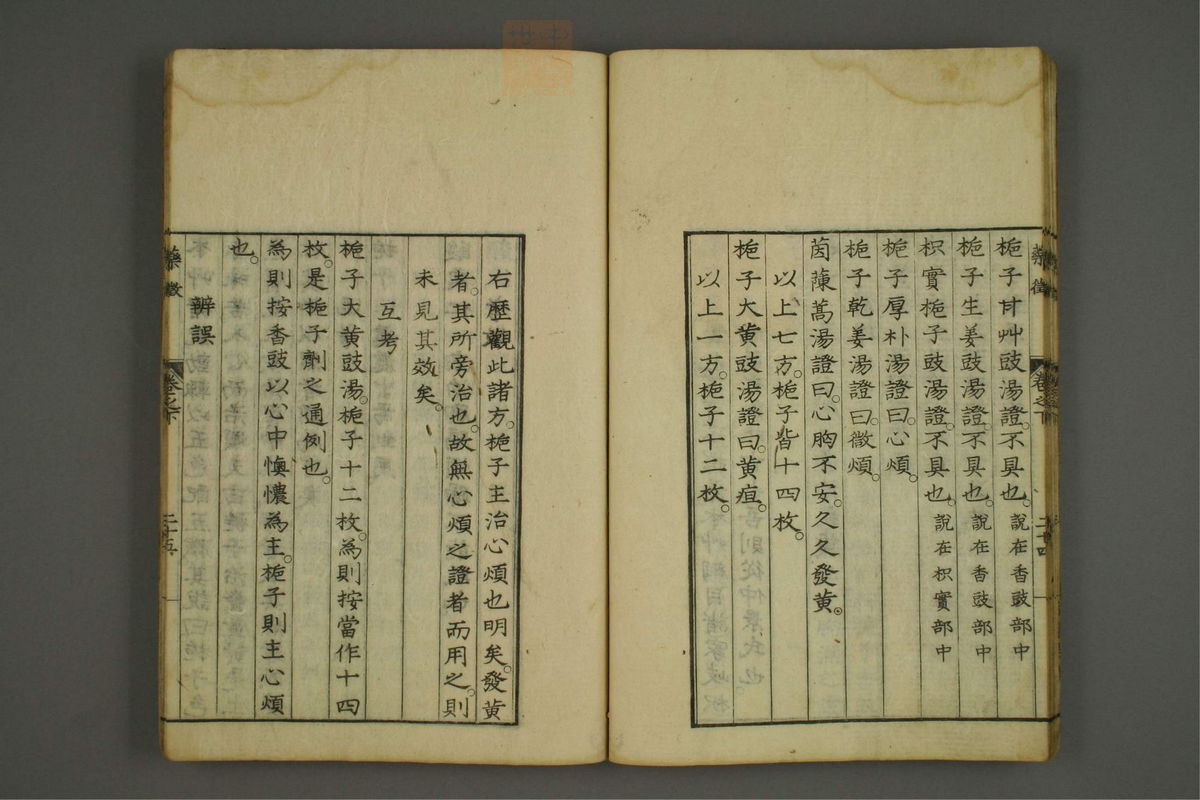 梔子甘艸豉湯證不具也。說在香豉部中
梔子生姜豉湯證不具也。說在香豉部中
枳實梔子豉湯證不具也。說在枳實部中
梔子厚朴湯證曰。心煩。
梔子乾姜湯證曰。微煩。
茵蔯蒿湯證曰。心胸不安。久久發黃。
以上七方。梔子皆十四枚。
梔子大黃豉湯證曰。黃疸。
以上一方。梔子十二枚。
藥徵
卷之下
二十四
右歷觀此諸方。梔子主治心煩也明矣。發黃
者。其所旁治也。故無心煩之證者而用之。則
未見其效矣。
互考
梔子大黃豉湯。梔子十二枚。為則按當作十四
枚。是梔子劑之通例也。
為則按香豉以心中懊憹為主。梔子則主心煩
也。
辨誤
藥徵
卷之下
二十五